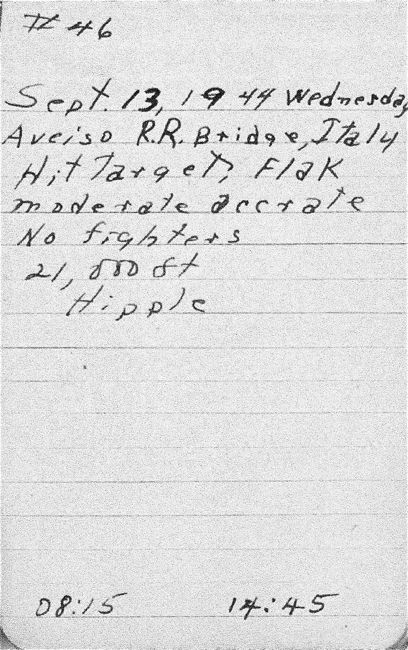 # 46
Sept. 13, 1944 Wednesday
Aveiso R.R. Bridge, Italy
Hit Target, Flak
moderate accrate
No fighters
21,000 ft
Hipple
08:15 14:45